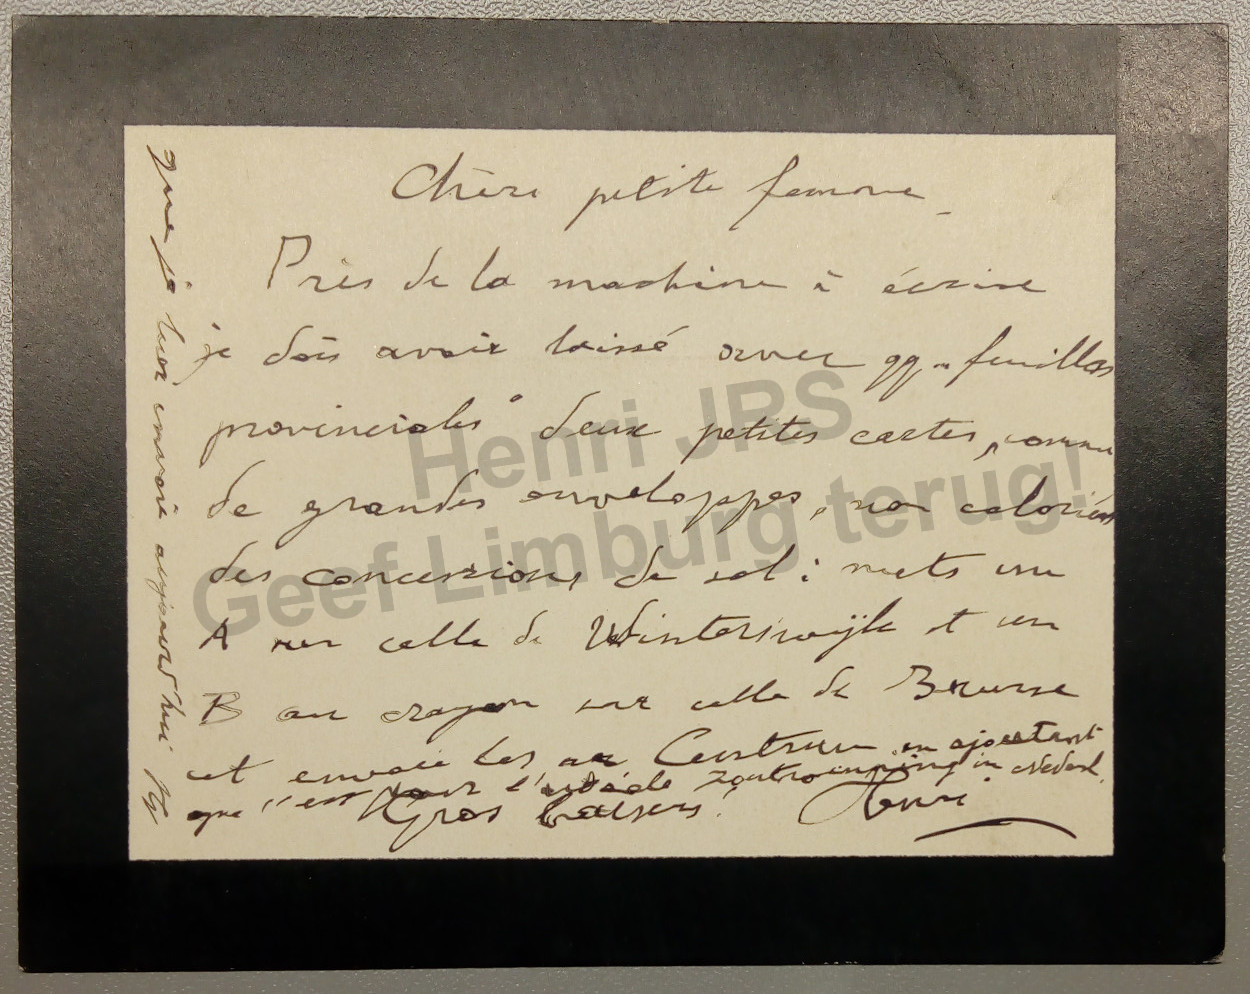 Chère petite femme
Près de la machine à écrire
je dois avoir laissé avec qq. feuilles
provinciales deux petites cartes, comme
de grandes enveloppes, non coloriées
des concessions de sel : mets un
A sur celle de Winterswijk et un
B au crayon sur celle de Buurse
et envoie les au Centrum en ajoutant
que c'est pour l' zoutwinning in Nederl.
Gros baisers! Henri
que je leur envoie aujourd'hui
Henri JRS
Geef Limburg terug!